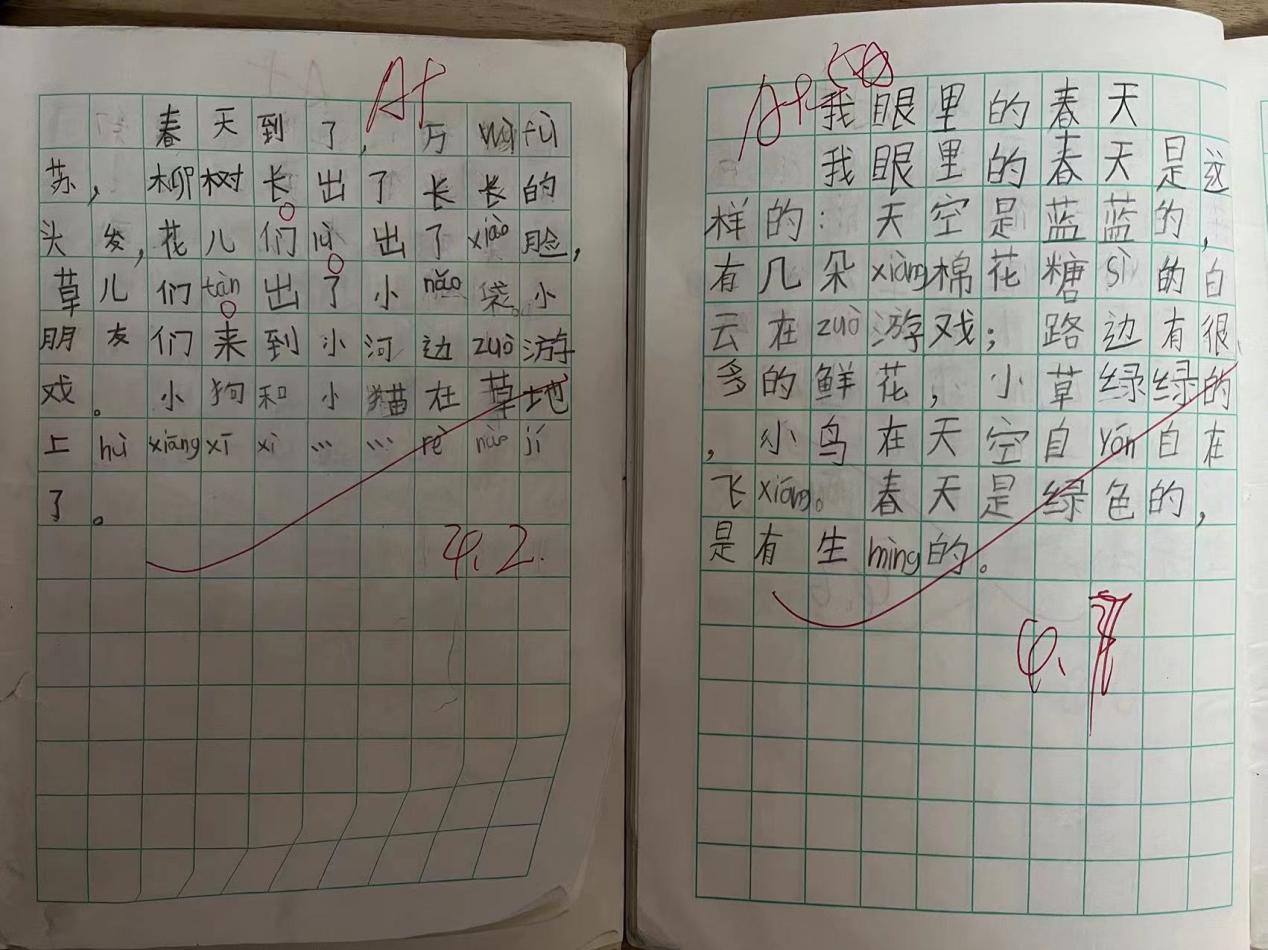 A+
春天到了，万wùfù
苏，柳树长出了长长的
头发，花儿们lù出了xiào脸，
草儿们tàn出了小nǎo袋。小
朋友们来到小河边zuò游
戏。小狗和小猫在草地
上hùxiāngxīxì……rènàojí
了。
4.2.
A+
我眼里的春天
我眼里的春天是这
样的：天空是蓝蓝的，
有几朵xiàng棉花糖sì的白
云在zuò游戏；路边有很
多的鲜花，小草绿绿的
，小鸟在天空自yóu自在
飞xiáng。春天是绿色的，
是有生mìng的。